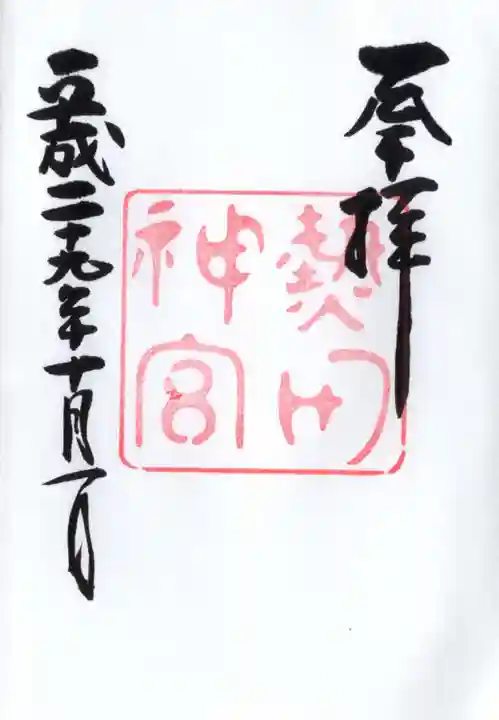 奉拝
熱田
神宮
平成二十九年十月一日